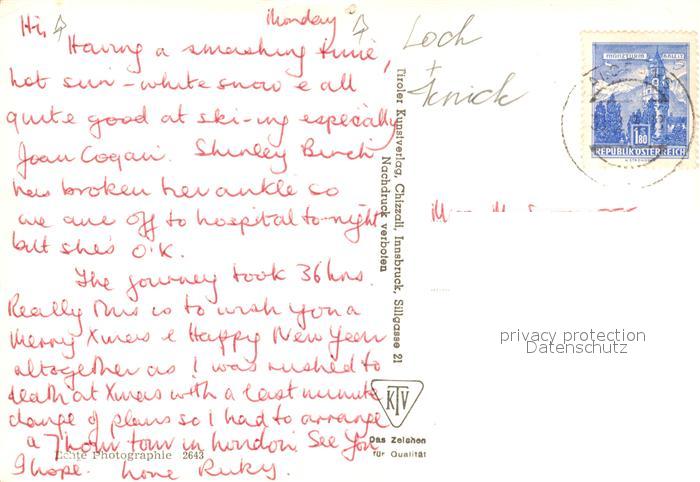 Hi, Monday
Having a smashing time,
hot sun - white snow & all
quite good at ski-ing especially
Joan Cogan. Shirley Birch
has broken her ankle so
we are off to hospital to-night
but she's O.K.
The journey took 36 hrs.
Really this is to wish you a
Merry Xmas & Happy New Year
altogether as I was rushed to
death at Xmas with a last minute
change of plans so I had to arrange
a 7 hour tour in London. See you
I hope. Love Ruky.
Echte Photographie 2643
Tiroler Kunstverlag, Chizzali, Innsbruck, Sillgasse 21
Nachdruck verboten
KTV
Das Zeichen
für Qualität
Loch
+
MÜNZTURM HALL I. T.
1.80
REPUBLIK ÖSTERREICH
privacy protection
Datenschutz